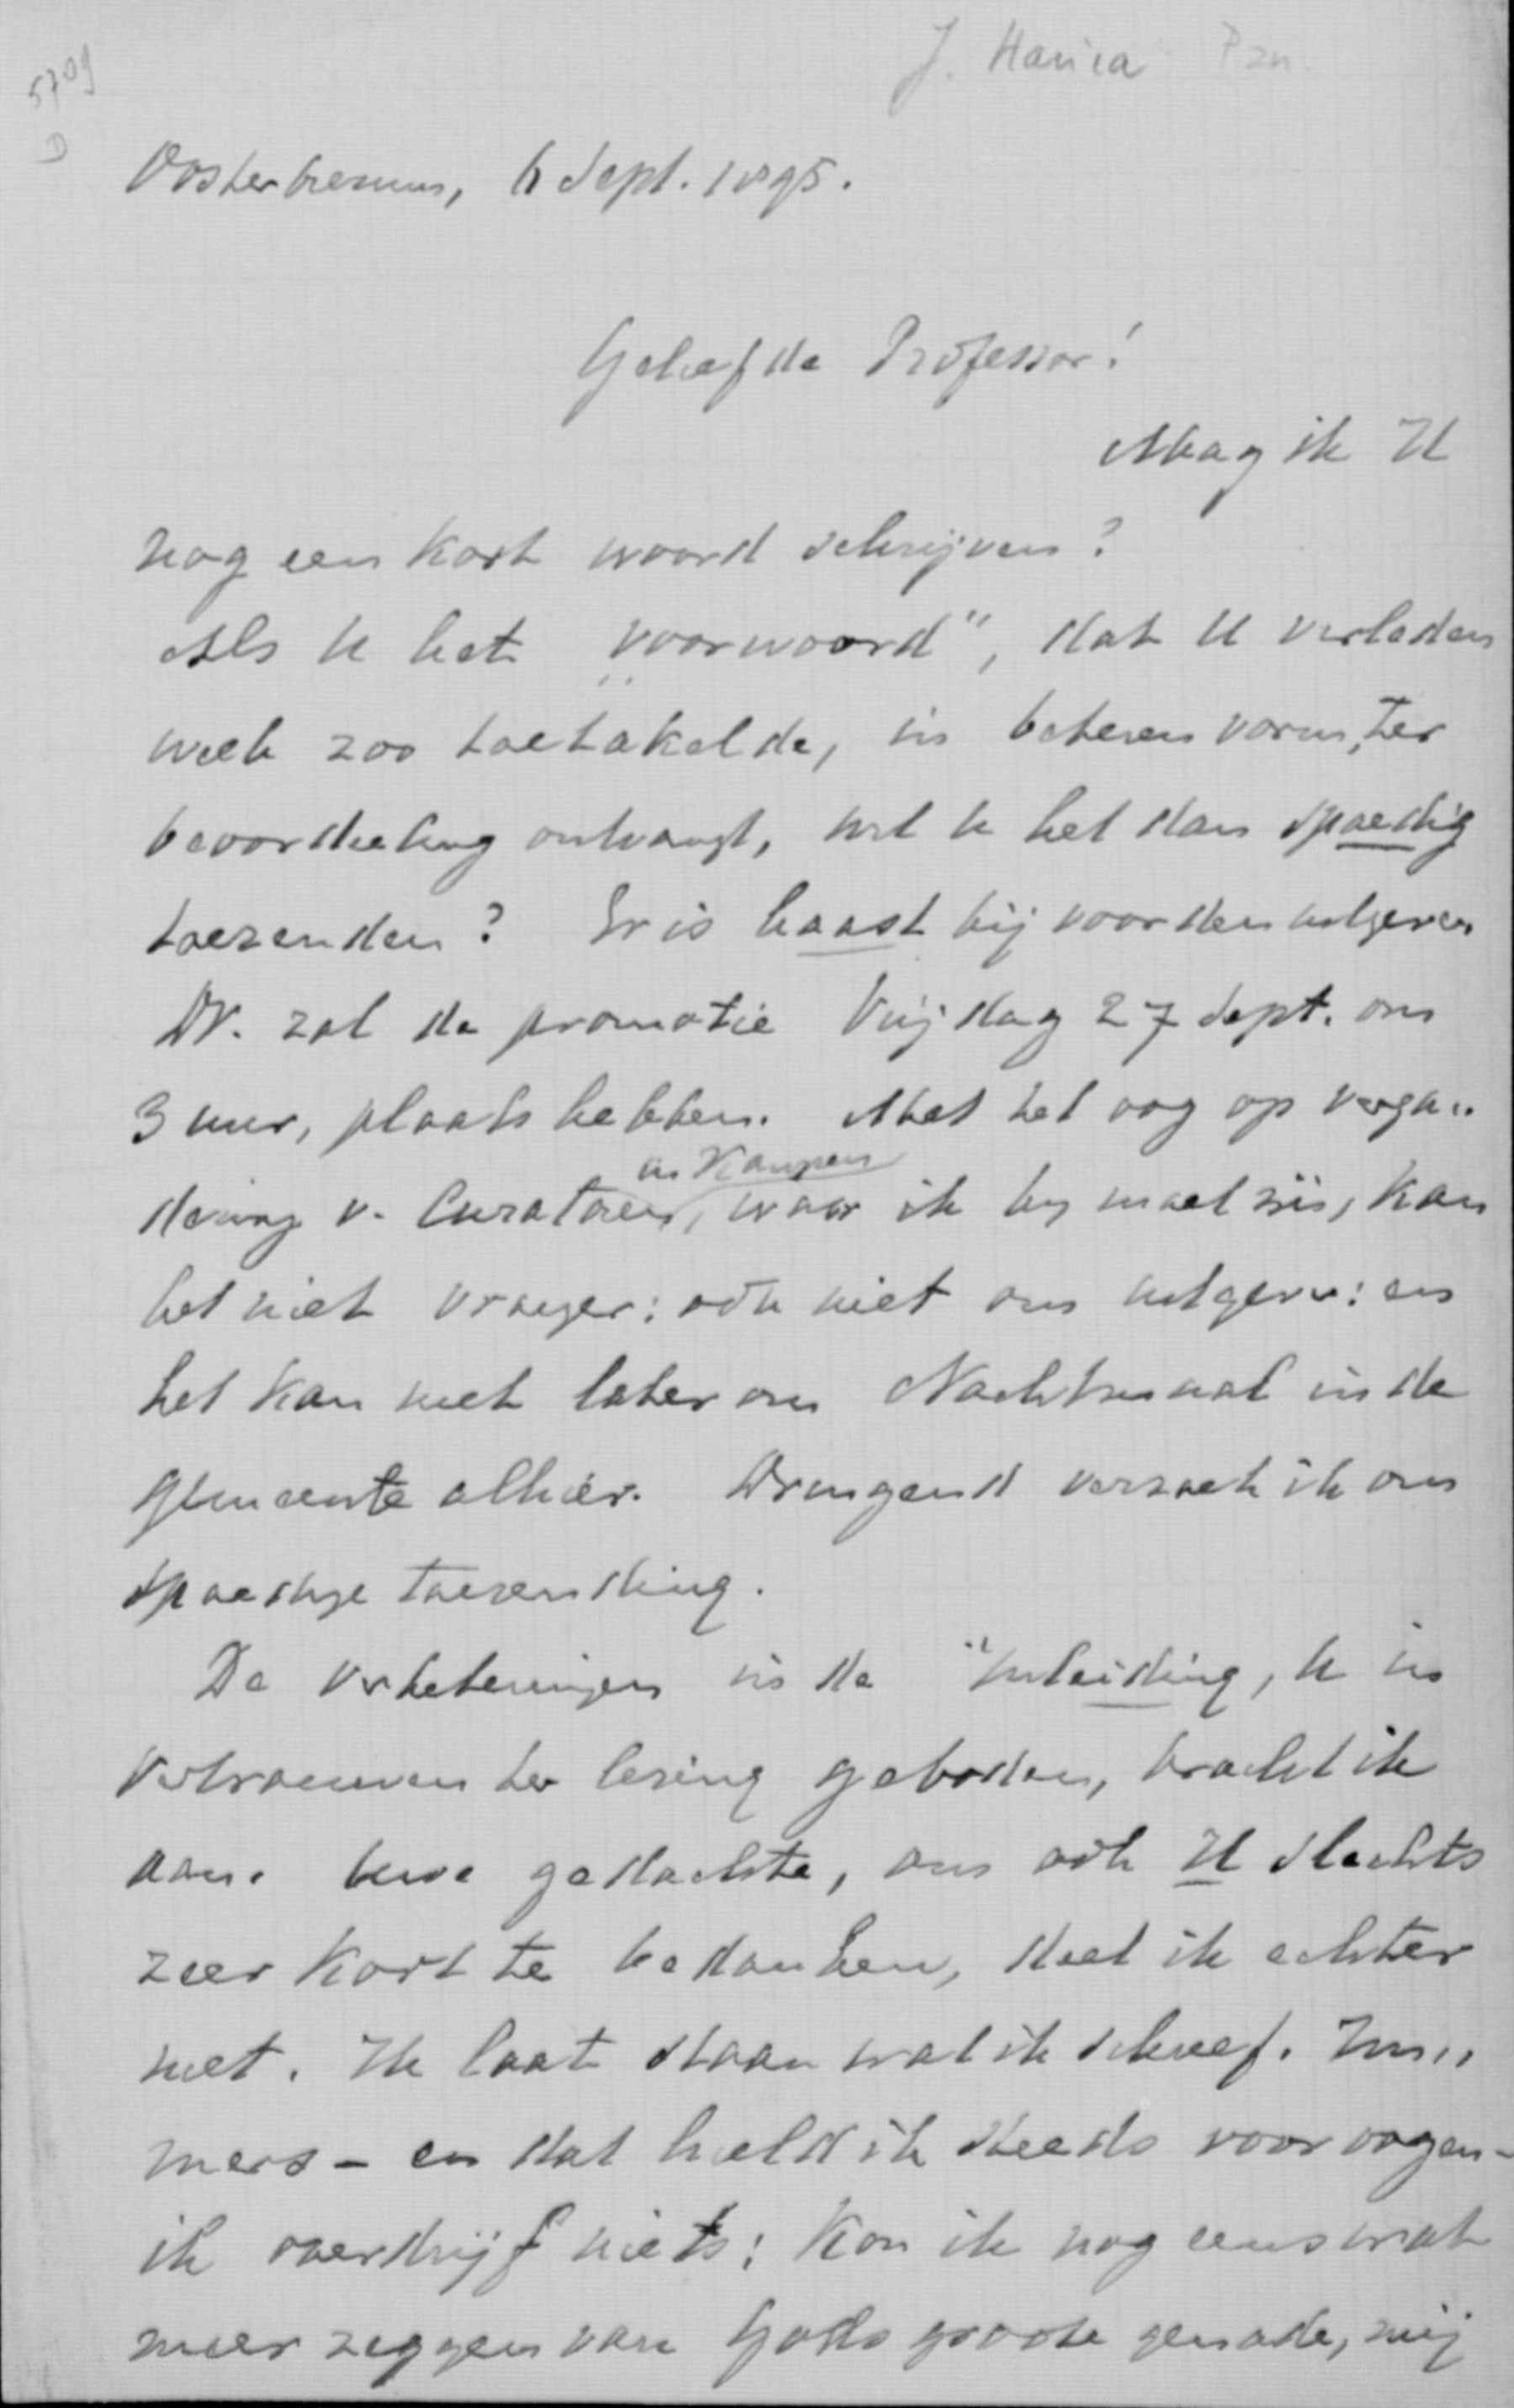 J. Hania Pzn.
5709
D
Oosterbierum, 6 Sept. 1895.
Geliefde Professor!
Mag ik U
nog een kort woord schrijven?
Als U het „voorwoord", dat U verleden
week zoo toetakelde, in beteren vorm, ter
beoordeeling ontvangt, wil U het dan spoedig
toezenden? Er is haast bij voor den uitgever
DV. zal de promotie Vrijdag 27 Sept. om
3 uur, plaats hebben. Met het oog op verga„
dering v. Curatoren, in Kampen waar ik bij moet zijn, kan
het niet vroeger: ook niet om uitgever: en
het kan niet later om Nachtmaal in de
gemeente alhier. Dringend verzoek ik om
spoedige toezending.
De verbeteringen in de "Inleiding, U in
vertrouwen ter lezing geboden, bracht ik
aan. Uwe gedachte, om ook U slechts
zeer kort te bedanken, deel ik echter
niet. Ik laat staan wat ik schreef. Im„
mers - en dat hield ik steeds voor oogen -
ik overdrijf niets: Kon ik nog eens wat
meer zeggen van Gods groote genade, mij